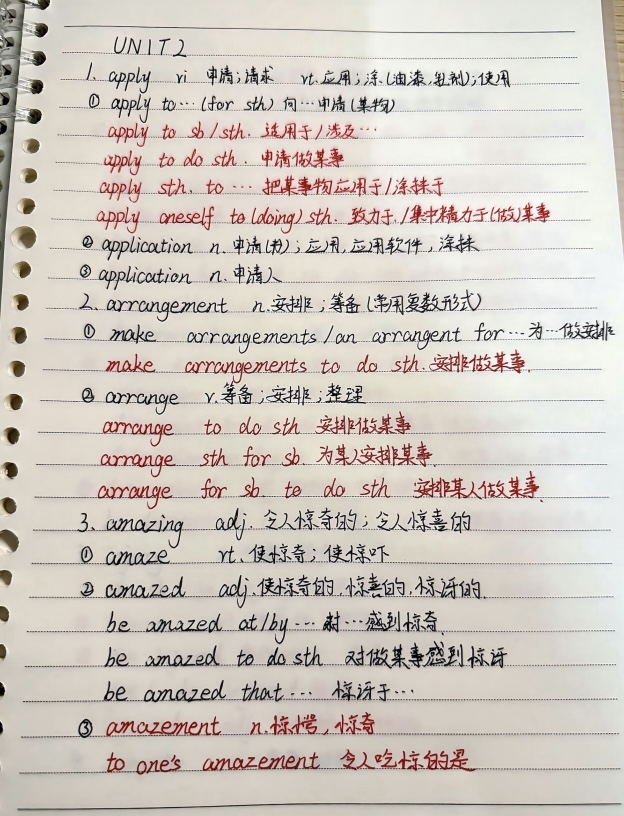 UNIT2
1. apply vi 申请;请求 vt.应用;涂(油漆,乳剂);使用
① apply to…(for sth) 向…申请(某物)
apply to sb/sth. 适用于/涉及…
apply to do sth. 申请做某事
apply sth. to … 把某事物应用于/涂抹于
apply oneself to (doing) sth. 致力于/集中精力于(做)某事
② application n.申请(书);应用,应用软件,涂抹
③ application n.申请人
2. arrangement n.安排;筹备(常用复数形式)
① make arrangements/an arrangent for…为…做安排
make arrangements to do sth.安排做某事.
② arrange v.筹备;安排;整理
arrange to do sth 安排做某事
arrange sth for sb. 为某人安排某事.
arrange for sb. to do sth 安排某人做某事.
3、amazing adj.令人惊奇的;令人惊喜的
① amaze vt.使惊奇;使惊吓
② amazed adj.使惊奇的,惊喜的,惊讶的.
be amazed at/by…对…感到惊奇.
be amazed to do sth 对做某事感到惊讶
be amazed that… 惊讶于…
③ amazement n.惊愕,惊奇
to one's amazement 令人吃惊的是